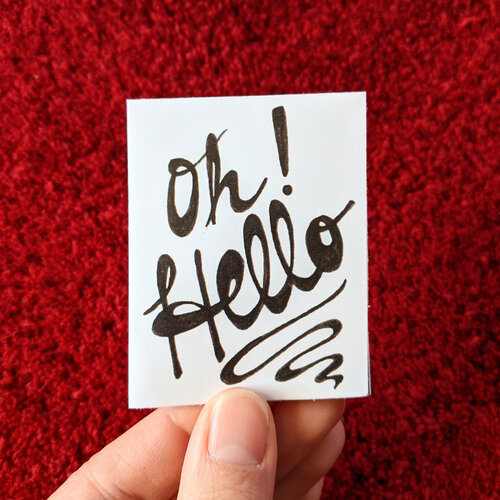 Oh!
Hello